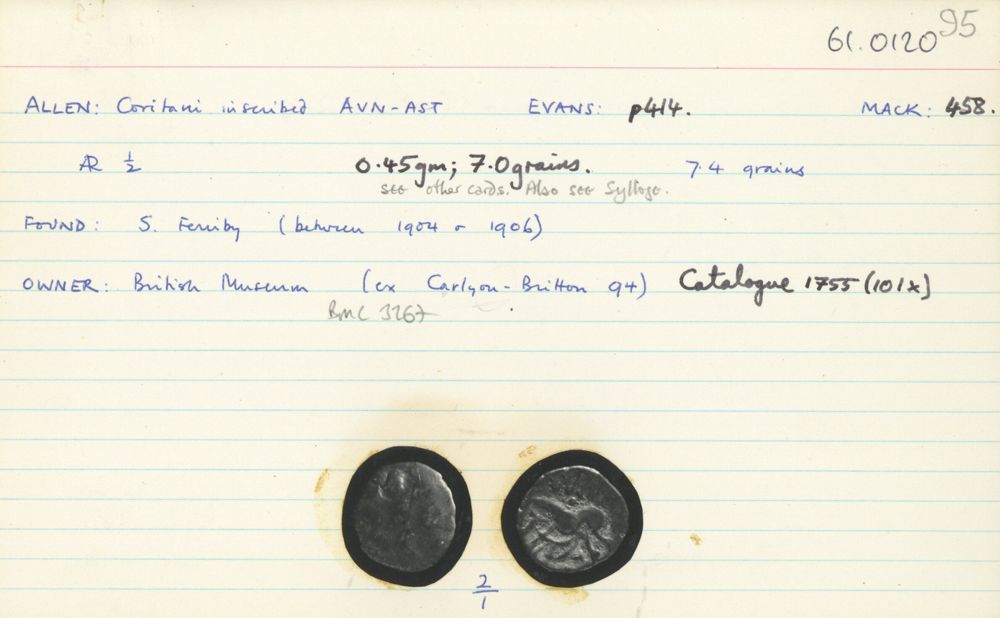 61.0120 95
ALLEN: Coritani inscribed AVN-AST EVANS: p414. MACK: 458.
AR ½ 0.45gm; 7.0grains. 7.4 grains
see other cards. Also see Sylloge.
FOUND: S. Ferriby (between 1904 & 1906)
OWNER: British Museum (ex Carlyon-Britton 94) Catalogue 1755 (101x)
BMC 3267
2/1